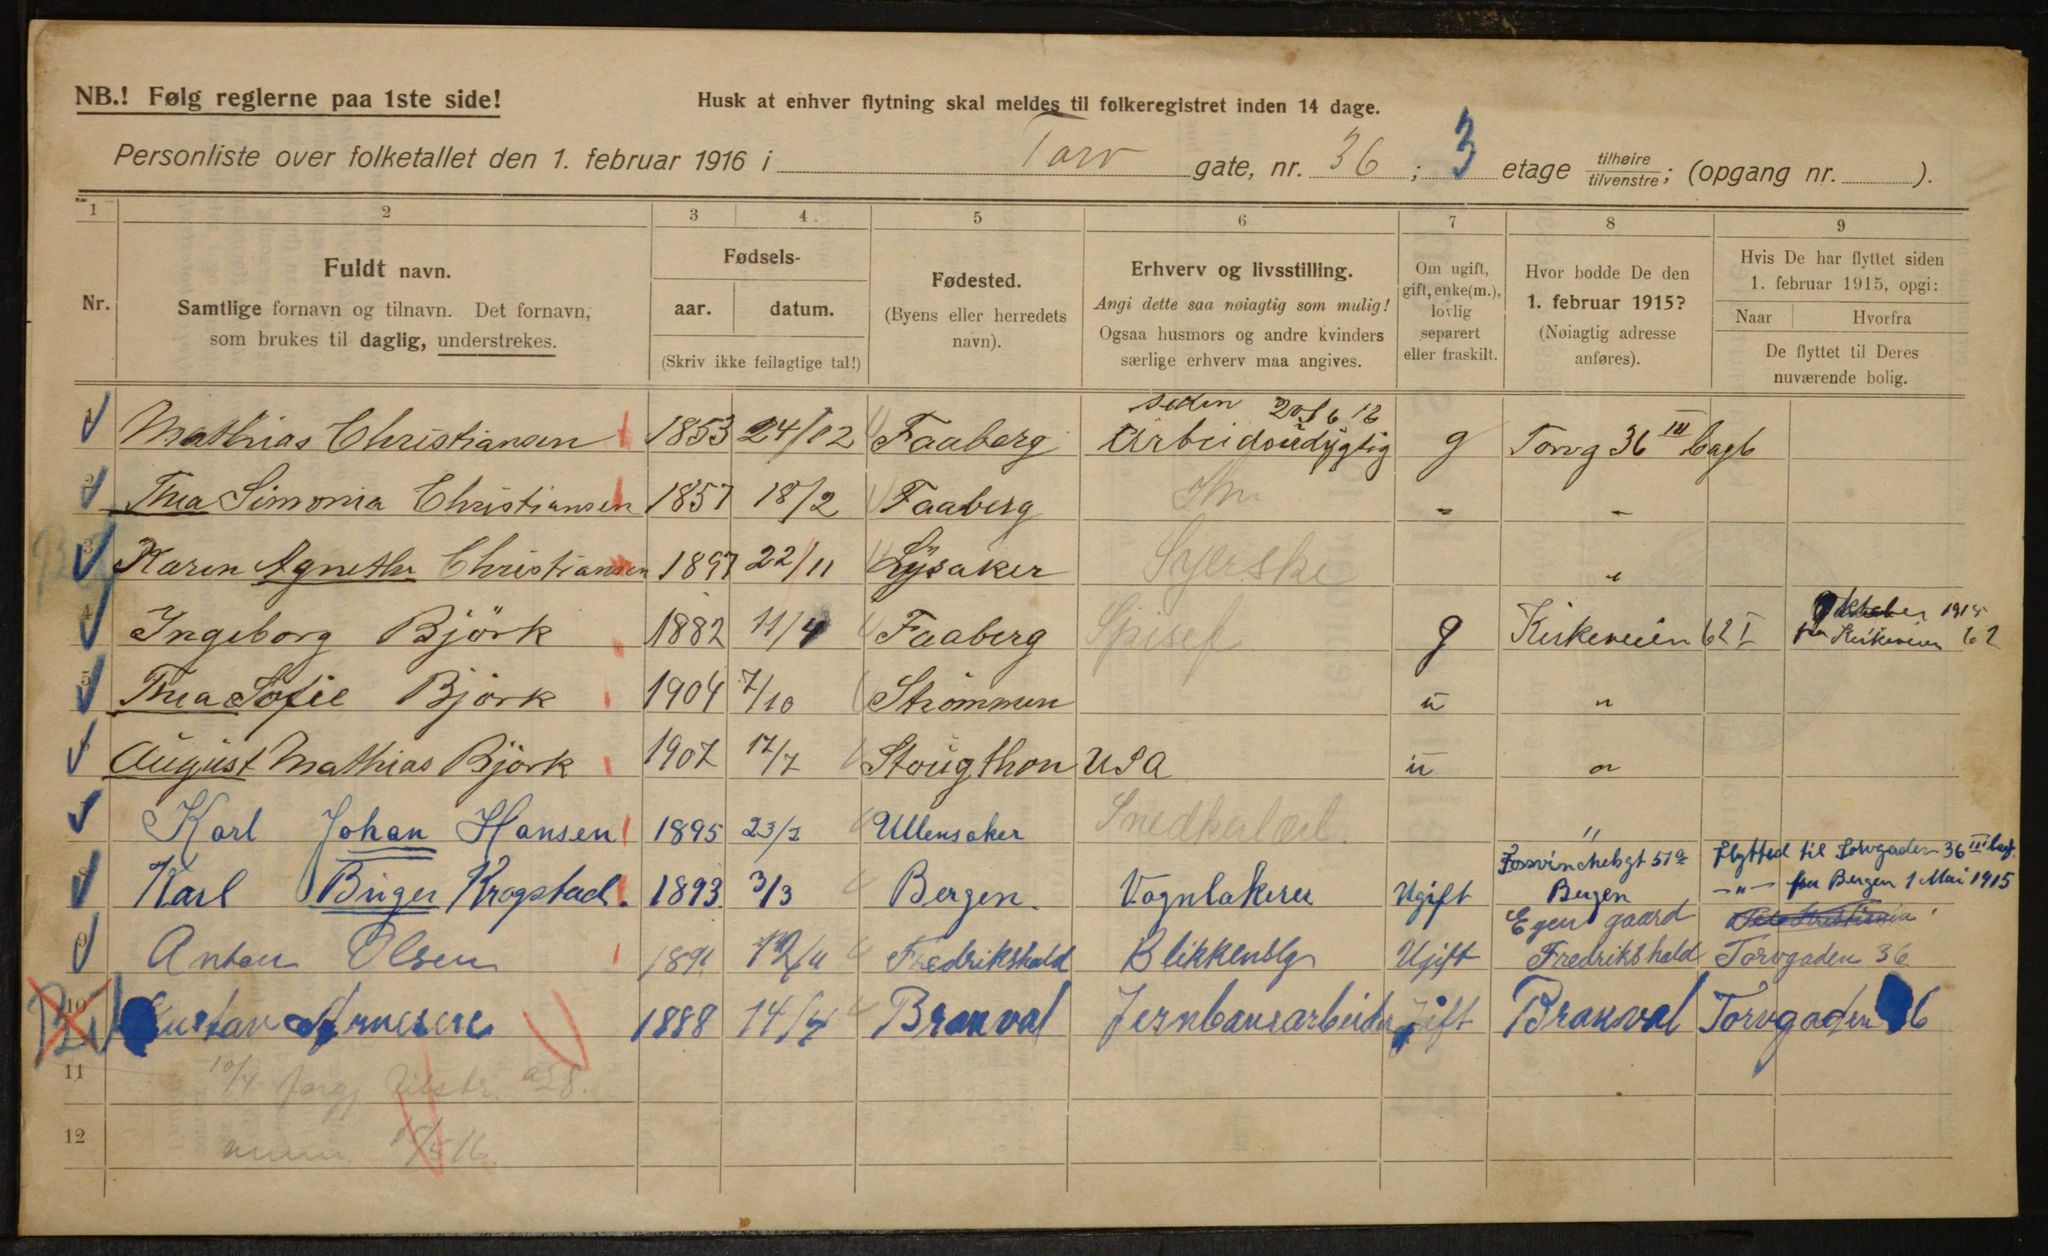 NB.! Følg reglerne paa 1ste side!
Husk at enhver flytning skal meldes til folkeregistret inden 14 dage.
Personliste over folketallet den 1. februar 1916 i Torv gate, nr. 36; 3 etage tilhøire/tilvenstre; (opgang nr. ).
1 2 3 4 5 6 7 8 9
Nr.
Fuldt navn.
Samtlige fornavn og tilnavn. Det fornavn,
som brukes til daglig, understrekes.
Fødsels-
aar. datum.
(Skriv ikke feilagtige tal!)
Fødested.
(Byens eller herredets
navn).
Erhverv og livsstilling.
Angi dette saa nøiagtig som mulig!
Ogsaa husmors og andre kvinders
særlige erhverv maa angives.
Om ugift,
gift, enke(m.),
lovlig
separert
eller fraskilt.
Hvor bodde De den
1. februar 1915?
(Nøiagtig adresse
anføres).
Hvis De har flyttet siden
1. februar 1915, opgi:
Naar Hvorfra
De flyttet til Deres
nuværende bolig.
siden
1 Mathias Christiansen 1853 24/12 Faaberg Arbeidsudygtig g Torvg 36 III bagb
2 Thea Simonia Christiansen 1857 18/2 Faaberg Hm " "
3 Karen Agnethe Christiansen 1897 22/11 Lysaker Syerske "
Oktober 1915
4 Ingeborg Björk 1882 11/4 Faaberg Spisef g Kirkeveien 62 I fra Kirkeveien 62
5 Thea Sofie Björk 1904 7/10 Strömmen u "
6 August Mathias Björk 1907 17/7 Stougthon USA u "
7 Karl Johan Hansen 1895 23/2 Ullensaker Snedkerlærl "
51a Flytted til Torvgaden 36 III bagb.
8 Karl Birger Krogstad. 1893 3/3 Bergen. Vognlakerer Ugift Bergen -"- fra Bergen 1 Mai 1915
Egen gaard
9 Anton Olsen 1891 12/4 Fredrikshald Blikkenslg Ugift Fredrikshald Torvgaden 36
10 Gustav 1888 14/4 Branval Jernbanearbeider Gift Branval Torvgaden 36
11 10/4
12 15/5 16.